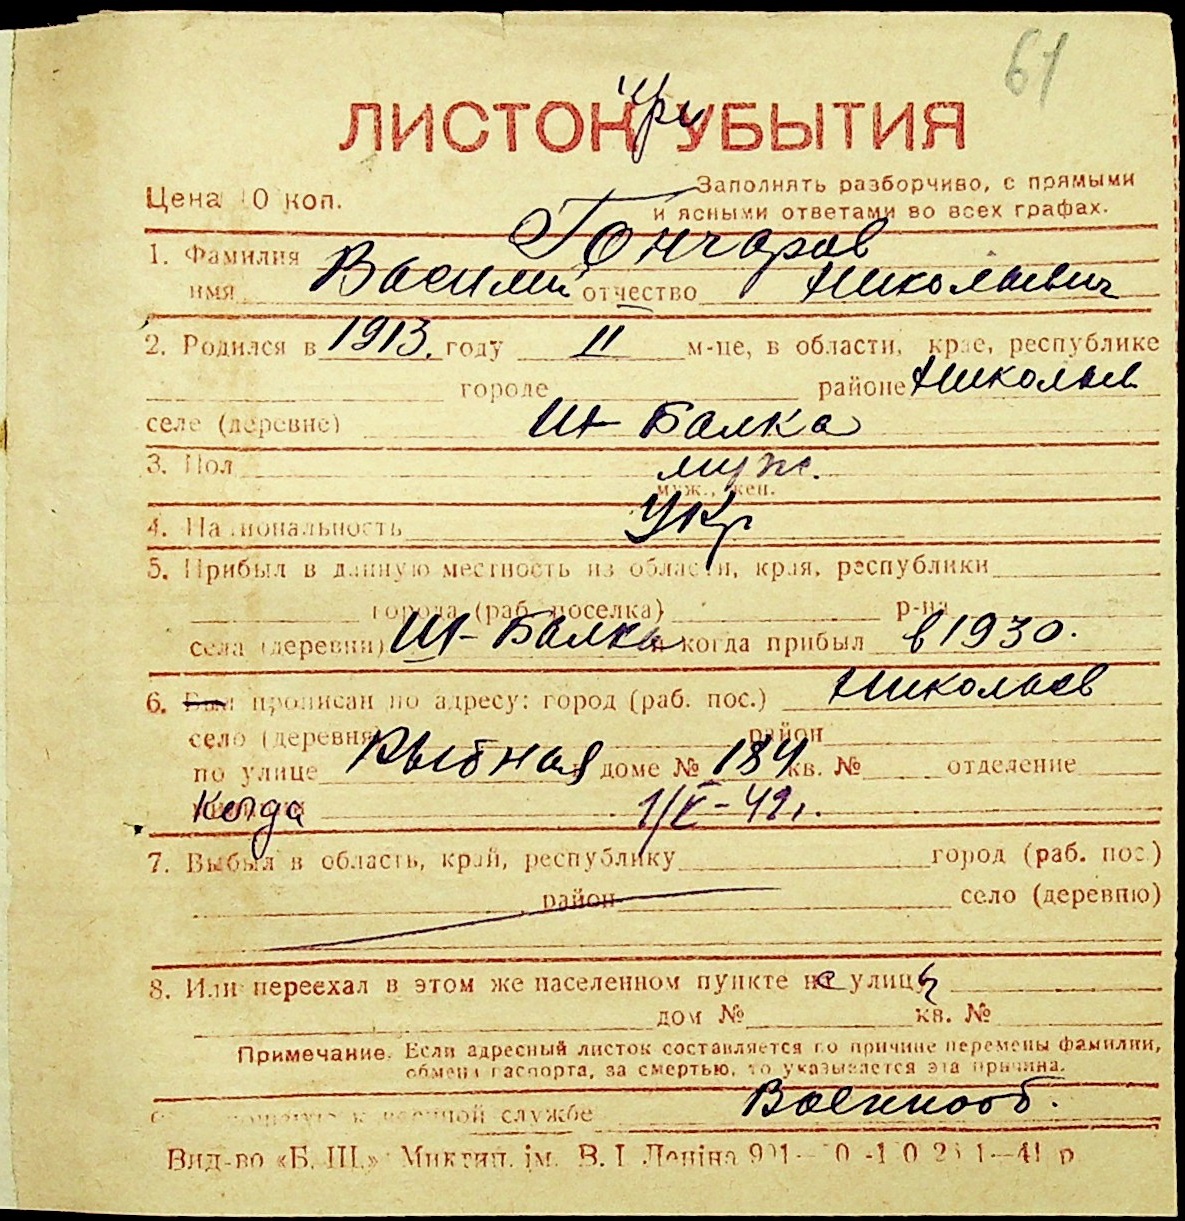 61
ЛИСТОК при УБЫТИЯ
Цена 10 коп.
Заполнять разборчиво, с прямыми
и ясными ответами во всех графах.
1. Фамилия Гончаров
имя Василий отчество Николаевич
2. Родился в 1913. году II м-це, в области, крае, республике
городе районе Николаев
селе (деревне) Шт Балка
3. Пол муж.
муж., жен.
4. Национальность Укр
5. Прибыл в данную местность из области, края, республики
города (раб. поселка) р-на
села (деревни) Шт-Балка и когда прибыл в 1930.
6. Был прописан по адресу: город (раб. пос.) Николаев
село (деревня) район
по улице Рыбная в доме № 184 кв. № отделение
Когда 1/V-42г.
7. Выбыл в область, край, республику город (раб. пос.)
район село (деревню)
8. Или переехал в этом же населенном пункте не улицы
дом № кв. №
Примечание. Если адресный листок составляется по причине перемены фамилии,
обмена паспорта, за смертью, то указывается эта причина.
военной службе Военнооб.
Вид-во «Б. Ш.» Миктип. ім. В. І. Леніна